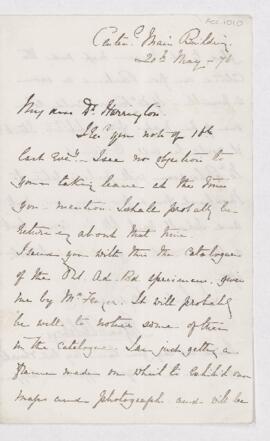 Acc. 1010
Centen.l Main Building
20th May - 76
My dear Dr Harrington
I rec.d your note of 18th
last Eve.g I see no objection to
your taking leave at the time
you mention. I shall probably be
returning about that time.
I send you with this the catalogue
of the specimens given
me by Mr It will probably
be well to notice some of them
in the catalogue. I am just getting a
frame made on which to exhibit our
maps and photograph and will be